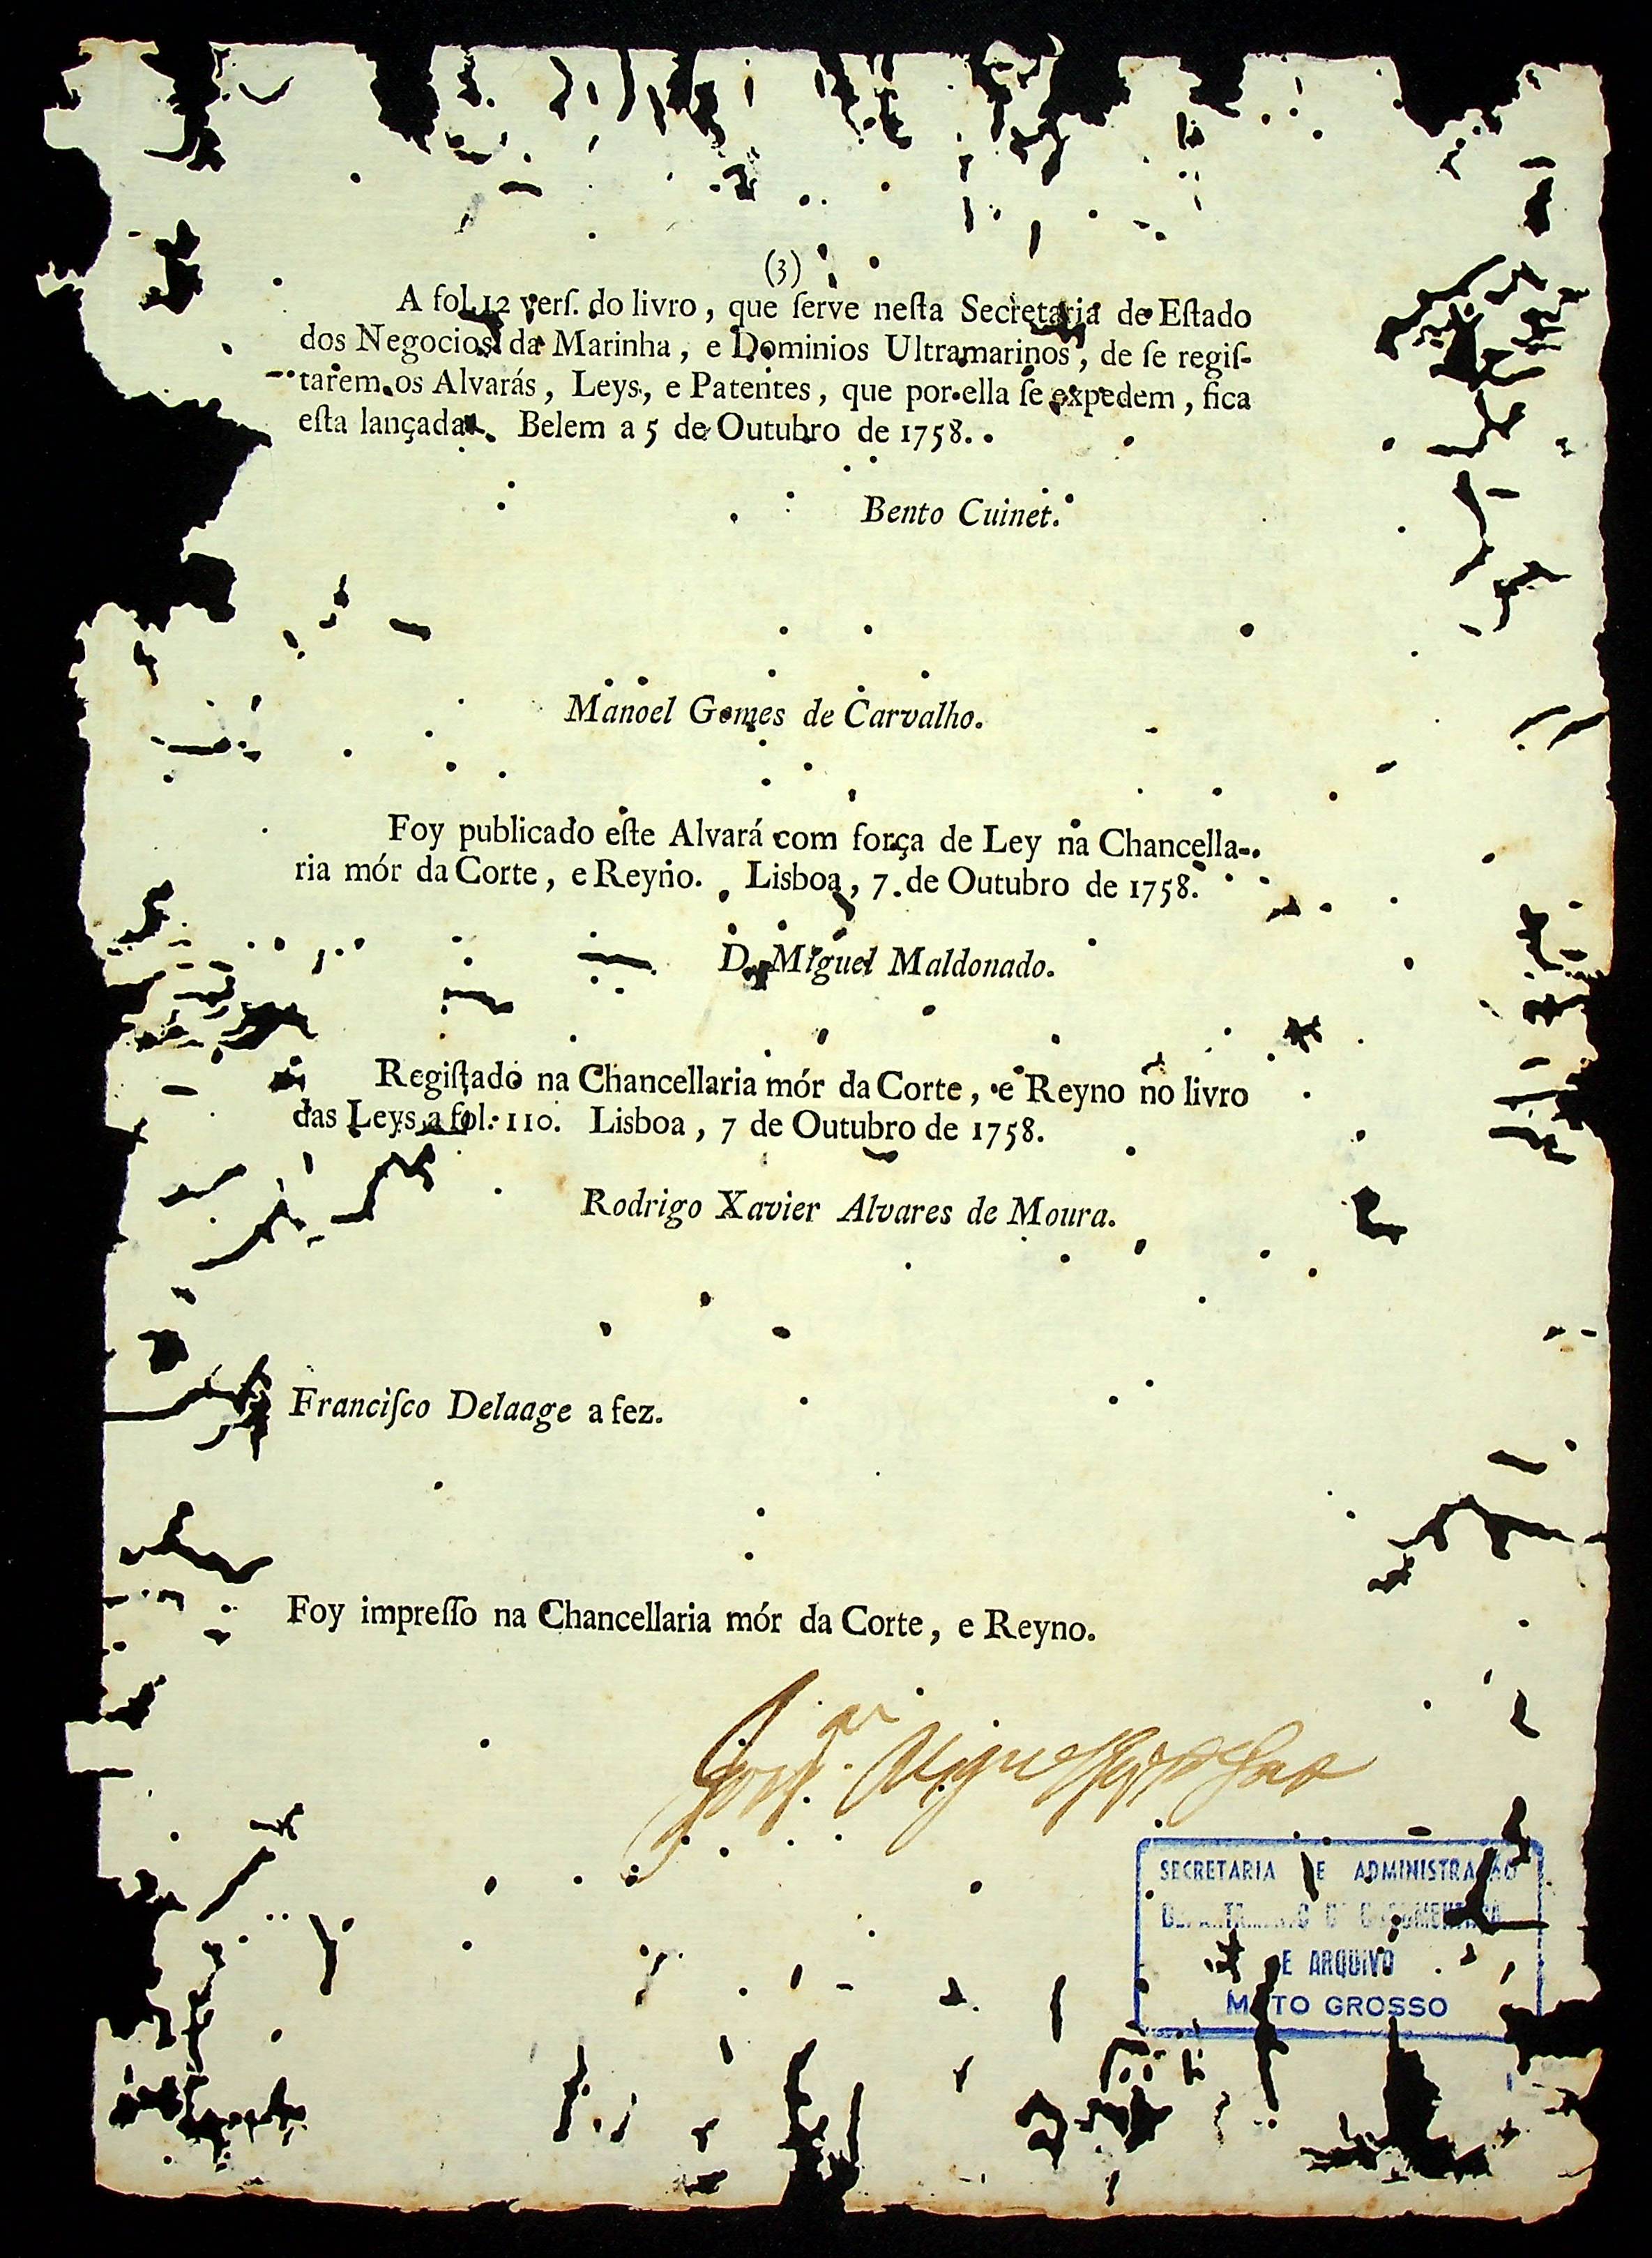 (3)
A fol. 12 verſ. do livro, que ſerve neſta Secretaria de Eſtado
dos Negocios da Marinha, e Dominios Ultramarinos, de ſe regiſ-
tarem os Alvarás, Leys, e Patentes, que por ella ſe expedem, fica
eſta lançada. Belem a 5 de Outubro de 1758.
Bento Cuinet.
Manoel Gomes de Carvalho.
Foy publicado eſte Alvará com força de Ley na Chancella-
ria mór da Corte, e Reyno. Lisboa, 7. de Outubro de 1758.
D. Miguel Maldonado.
Regiſtado na Chancellaria mór da Corte, e Reyno no livro
das Leys a fol. 110. Lisboa, 7 de Outubro de 1758.
Rodrigo Xavier Alvares de Moura.
Franciſco Delaage a fez.
Foy impreſſo na Chancellaria mór da Corte, e Reyno.
SECRETARIA DE ADMINISTRAÇÃO
E ARQUIVO
MATO GROSSO